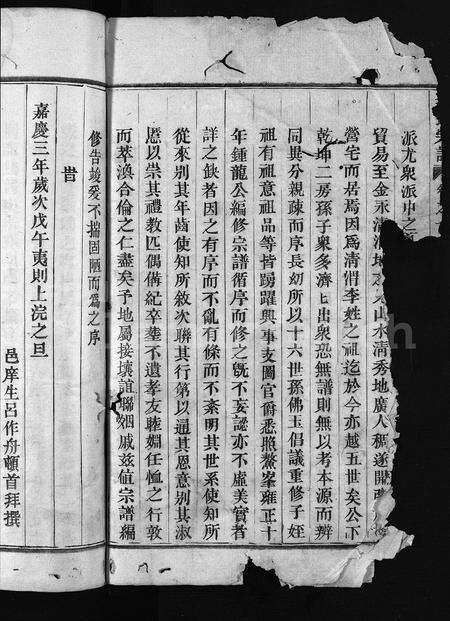 派尤衆派中之
貿易至金永清 地 山水清秀地廣人稠遂開
營宅而居焉因爲清渭李姓之祖迄於今亦越五世矣公下
乾坤二房孫子衆多濟濟出衆恐無譜則無以考本源而辨
同異分親疎而序長幼所以十六世孫佛玉倡議重修子姪
祖有祖意祖品等皆踴躍興事支圖官爵悉照鰲峯雍正十
年鍾龍公編修宗譜循序而修之旣不妄謐亦不虛美實者
詳之缺者因之有序而不亂有條而不紊明其世系使知所
從來別其年齒使知所敘次聯其行第以通其恩意別其淑
慝以崇其禮教匹偶備紀卒塟不遺孝友睦婣任恤之行敦
而萃渙合倫之仁盡矣予地屬接壤誼聯姻戚兹値宗譜編
修告竣爰不揣固陋而爲之序
旹
嘉慶三年歲次戊午夷則上浣之旦
邑庠生呂作舟頓首拜撰